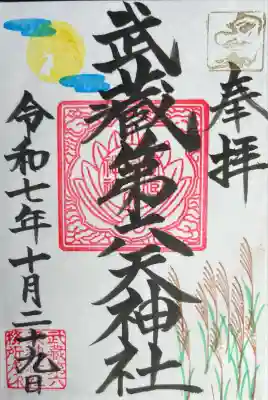 奉拝
武蔵第六天神社
令和七年十月二十九日